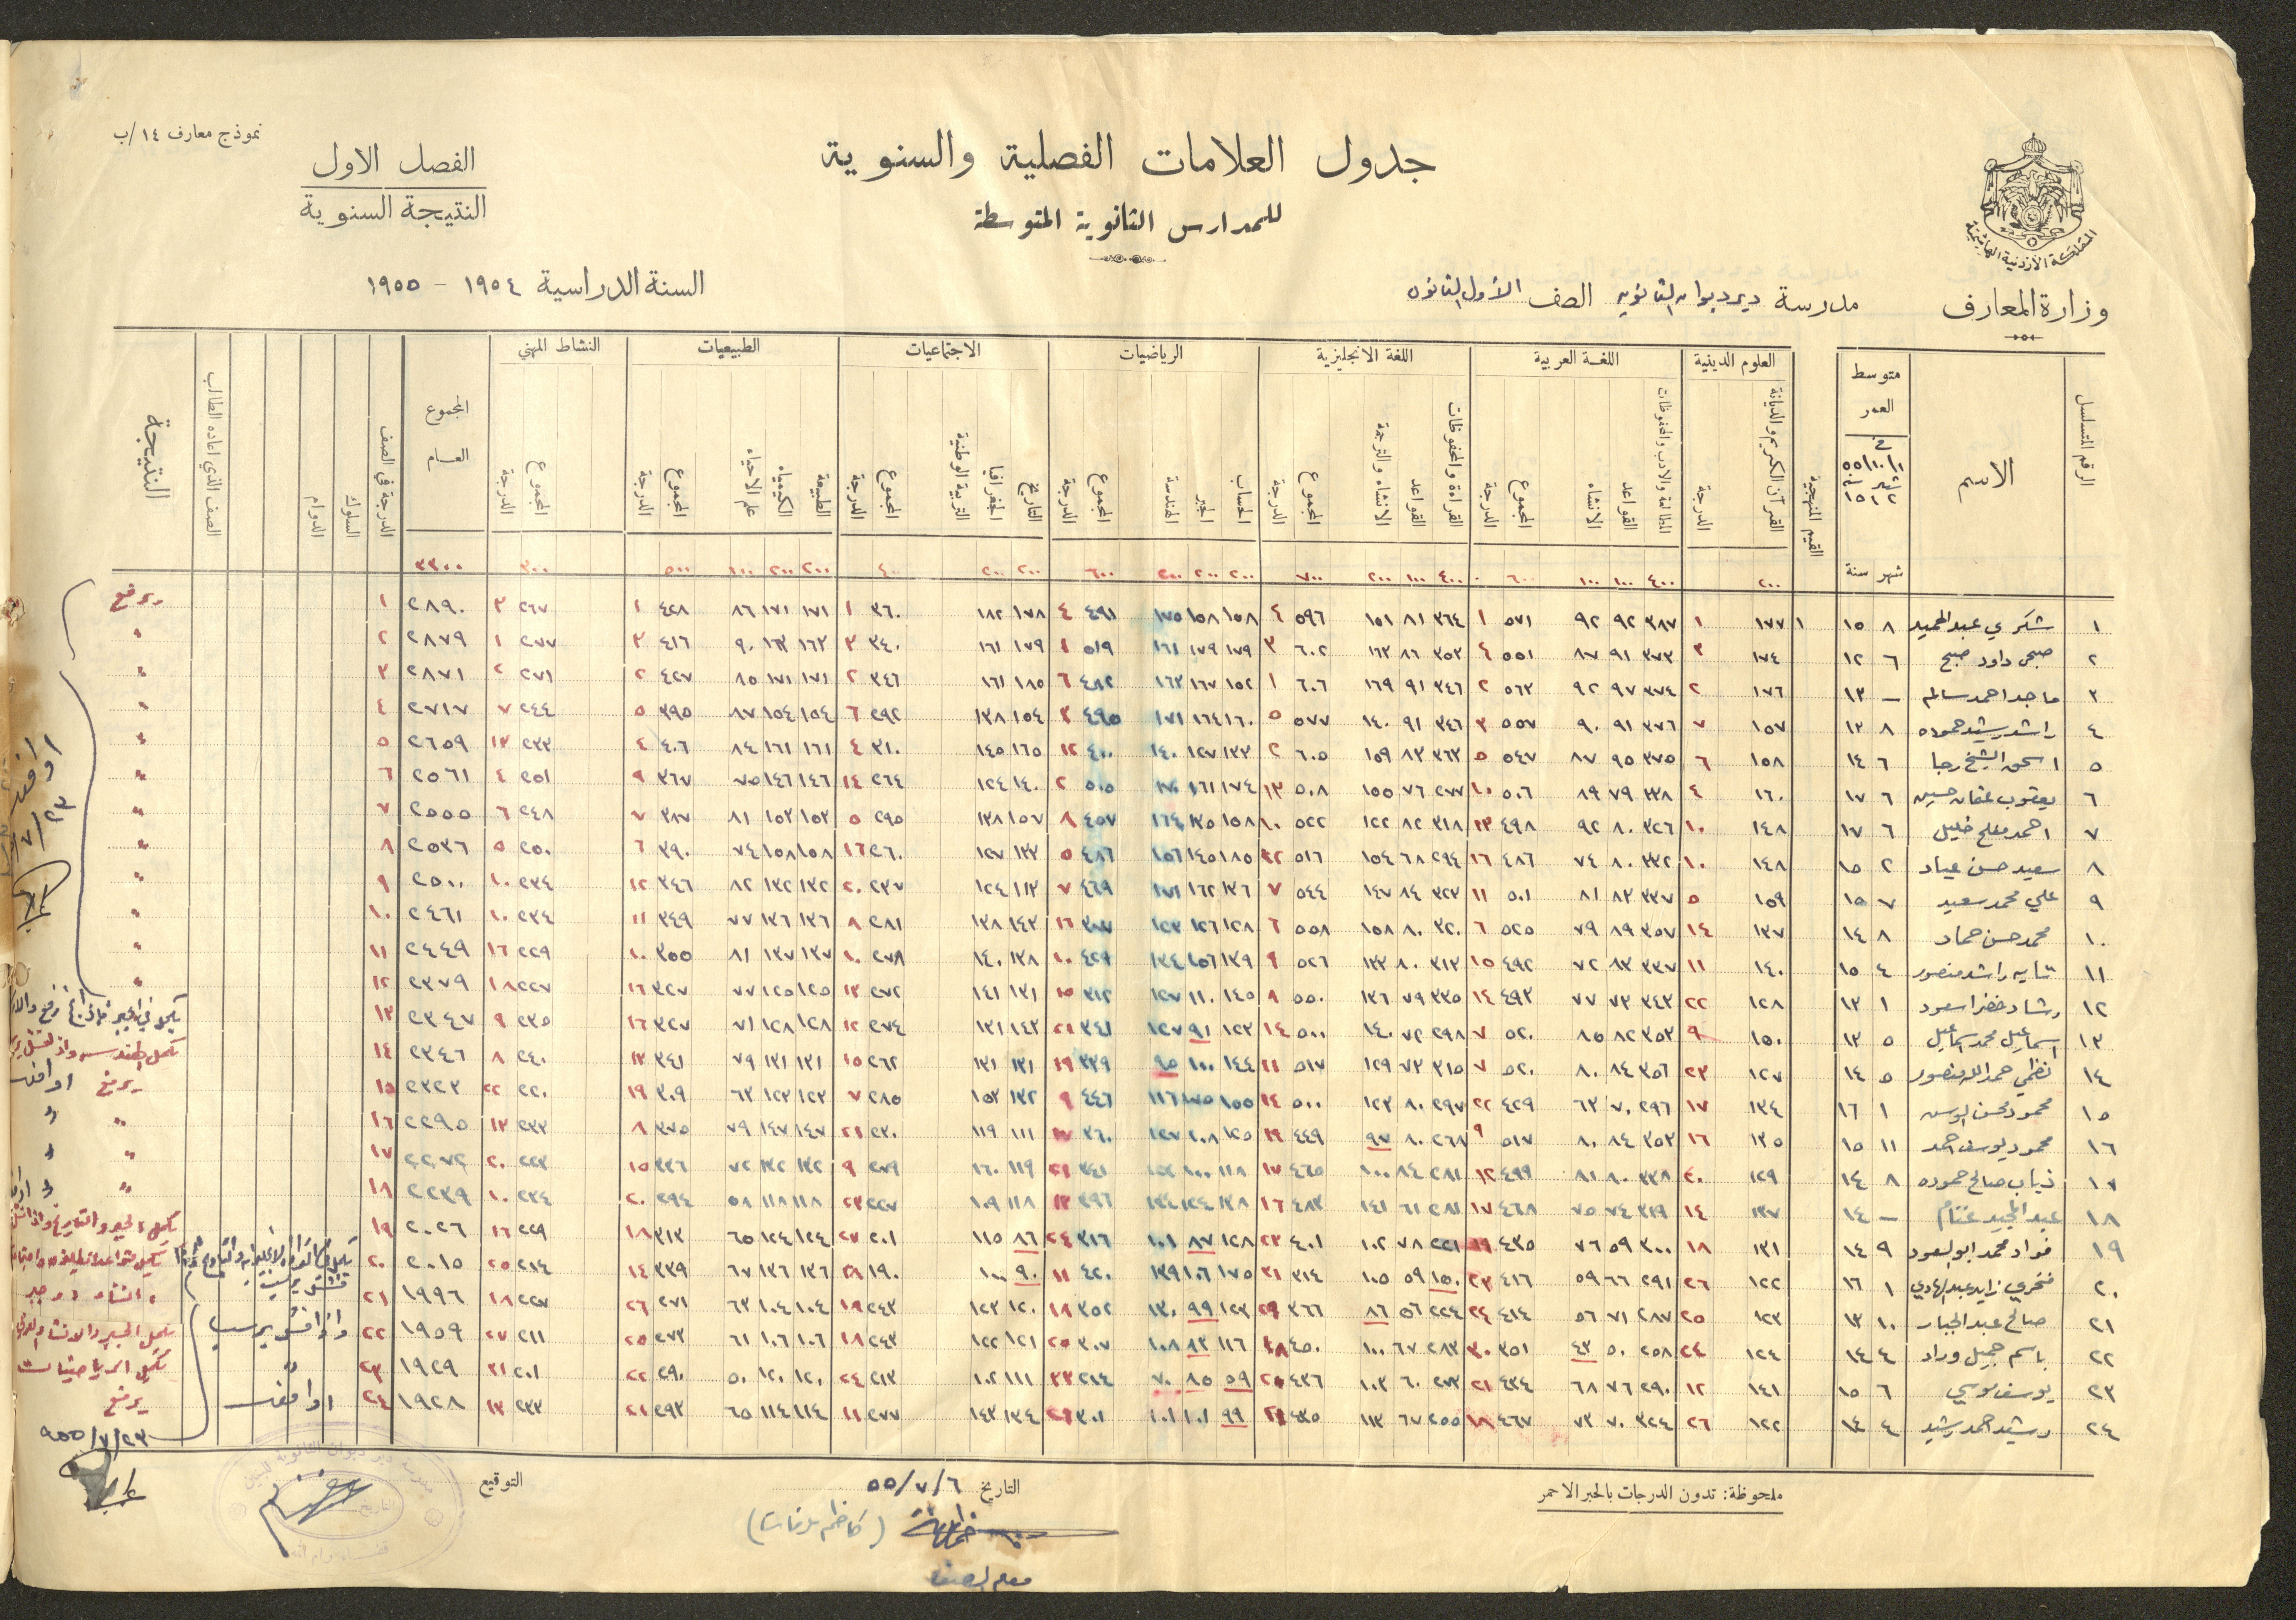 نموذج معارف ١٤/ب
جدول العلامات الفصلية والسنوية
للمدارس الثانوية المتوسطة
الفصل الاول
النتيجة السنوية
المملكة الأردنية الهاشمية
وزارة المعارف
مدرسة ديرديوان الثانوية الصف الأول الثانوي
السنة الدراسية ١٩٥٤ - ١٩٥٥
الرقم المتسلسل
الاسم
متوسط العمر
شهر سنة
القيم المنهجية
العلوم الدينية
القرآن الكريم والديانة
الدرجة
اللغة العربية
المطالعة والادب والمحفوظات
القواعد
الانشاء
المجموع
الدرجة
اللغة الانجليزية
القراءة والمحفوظات
القواعد
الانشاء والترجمة
المجموع
الدرجة
الرياضيات
الحساب
الجبر
الهندسة
المجموع
الدرجة
الاجتماعيات
التاريخ
الجغرافيا
التربية الوطنية
المجموع
الدرجة
الطبيعيات
الطبيعة
الكيمياء
علم الاحياء
المجموع
الدرجة
النشاط المهني
المجموع
الدرجة
المجموع العام
الدرجة في الصف
السلوك
الدوام
الصف الذي اعاده الطالب
النتيجة
٢٠٠ ٤٠٠ ١٠٠ ١٠٠ ٦٠٠ ٤٠٠ ١٠٠ ٢٠٠ ٧٠٠ ٢٠٠ ٢٠٠ ٢٠٠ ٦٠٠ ٢٠٠ ٢٠٠ ٤٠٠ ٢٠٠ ٢٠٠ ١٠٠ ٥٠٠ ٣٠٠ ٣٣٠٠
١ شكري عبدالحميد ٨ ١٥ ١ ١٧٧ ١ ٣٨٧ ٩٢ ٩٢ ٥٧١ ١ ٣٦٤ ٨١ ١٥١ ٥٩٦ ٤ ١٥٨ ١٥٨ ١٧٥ ٤٩١ ٤ ١٧٨ ١٨٢ ٣٦٠ ١ ١٧١ ١٧١ ٨٦ ٤٢٨ ١ ٢٦٧ ٣ ٢٨٩٠ ١ يرفع
٢ صبحي داود صبح ٦ ١٢ ١٧٤ ٣ ٣٧٣ ٩١ ٨٧ ٥٥١ ٤ ٣٥٣ ٨٦ ١٦٣ ٦٠٢ ٣ ١٧٩ ١٧٩ ١٦١ ٥١٩ ١ ١٧٩ ١٦١ ٣٤٠ ٣ ١٦٣ ١٦٣ ٩٠ ٤١٦ ٣ ٢٧٧ ١ ٢٨٧٩ ٢ "
٣ ماجد احمد سالم - ١٣ ١٧٦ ٢ ٣٧٤ ٩٧ ٩٢ ٥٦٣ ٢ ٣٤٦ ٩١ ١٦٩ ٦٠٦ ١ ١٥٢ ١٦٧ ١٦٣ ٤٨٢ ٦ ١٨٥ ١٦١ ٣٤٦ ٢ ١٧١ ١٧١ ٨٥ ٤٢٧ ٢ ٢٧١ ٢ ٢٨٧١ ٣ "
٤ راشد رشيد حموده ٨ ١٣ ١٥٧ ٧ ٣٧٦ ٩١ ٩٠ ٥٥٧ ٣ ٣٤٦ ٩١ ١٤٠ ٥٧٧ ٥ ١٦٠ ١٦٤ ١٧١ ٤٩٥ ٣ ١٥٤ ١٣٨ ٢٩٢ ٦ ١٥٤ ١٥٤ ٨٧ ٣٩٥ ٥ ٢٤٤ ٧ ٢٧١٧ ٤ "
٥ اسحق الشيخ رجا ٦ ١٤ ١٥٨ ٦ ٣٧٥ ٩٥ ٨٧ ٥٤٧ ٥ ٣٦٣ ٨٣ ١٥٩ ٦٠٥ ٢ ١٣٣ ١٢٧ ١٤٠ ٤٠٠ ١٢ ١٦٥ ١٤٥ ٣١٠ ٤ ١٦١ ١٦١ ٨٤ ٤٠٦ ٤ ٢٣٣ ١٣ ٢٦٥٩ ٥ "
٦ يعقوب عثمان حسين ٦ ١٧ ١٦٠ ٤ ٣٣٨ ٧٩ ٨٩ ٥٠٦ ١٠ ٢٧٧ ٧٦ ١٥٥ ٥٠٨ ١٣ ١٧٤ ١٦١ ١٧٠ ٥٠٥ ٢ ١٤٠ ١٢٤ ٢٦٤ ١٤ ١٤٦ ١٤٦ ٧٥ ٣٦٧ ٩ ٢٥١ ٤ ٢٥٦١ ٦ "
٧ احمد مفلح خليل ٦ ١٧ ١٤٨ ١٠ ٣٢٦ ٨٠ ٩٢ ٤٩٨ ١٣ ٣١٨ ٨٢ ١٢٢ ٥٢٢ ١٠ ١٥٨ ١٣٥ ١٦٤ ٤٥٧ ٨ ١٥٧ ١٣٨ ٢٩٥ ٥ ١٥٣ ١٥٣ ٨١ ٣٨٧ ٧ ٢٤٨ ٦ ٢٥٥٥ ٧ "
٨ سعيد حسن عياد ٢ ١٥ ١٤٨ ١٠ ٣٣٢ ٨٠ ٧٤ ٤٨٦ ١٦ ٢٩٤ ٦٨ ١٥٤ ٥١٦ ١٢ ١٨٥ ١٤٥ ١٥٦ ٤٨٦ ٥ ١٣٣ ١٢٧ ٢٦٠ ١٦ ١٥٨ ١٥٨ ٧٤ ٣٩٠ ٦ ٢٥٠ ٥ ٢٥٣٦ ٨ "
٩ علي محمد سعيد ٧ ١٥ ١٥٩ ٥ ٣٣٧ ٨٣ ٨١ ٥٠١ ١١ ٣٢٣ ٨٤ ١٤٧ ٥٤٤ ٧ ١٣٦ ١٦٢ ١٧١ ٤٦٩ ٧ ١١٣ ١٢٤ ٢٣٧ ٢٠ ١٣٢ ١٣٢ ٨٢ ٣٤٦ ١٢ ٢٣٤ ١٠ ٢٥٠٠ ٩ "
١٠ محمد حسن حماد ٨ ١٤ ١٣٧ ١٤ ٣٥٧ ٨٩ ٧٩ ٥٢٥ ٦ ٣٢٠ ٨٠ ١٥٨ ٥٥٨ ٦ ١٢٨ ١٢٦ ١٢٣ ٣٧٧ ١٦ ١٤٣ ١٣٨ ٢٨١ ٨ ١٣٦ ١٣٦ ٧٧ ٣٤٩ ١١ ٢٣٤ ١٠ ٢٤٦١ ١٠ "
١١ تايه راشد منصور ٤ ١٥ ١٤٠ ١١ ٣٣٧ ٨٣ ٧٢ ٤٩٢ ١٥ ٣١٣ ٨٠ ١٣٣ ٥٢٦ ٩ ١٣٩ ١٥٦ ١٣٤ ٤٢٩ ١٠ ١٣٨ ١٤٠ ٢٧٨ ١٠ ١٣٧ ١٣٧ ٨١ ٣٥٥ ١٠ ٢٢٩ ١٦ ٢٤٤٩ ١١ "
١٢ رشاد خضر اسعود ١ ١٣ ١٢٨ ٢٢ ٣٤٣ ٧٣ ٧٧ ٤٩٣ ١٤ ٣٣٥ ٧٩ ١٣٦ ٥٥٠ ٩ ١٤٥ ١١٠ ١٢٧ ٣١٢ ١٥ ١٣١ ١٤١ ٢٧٢ ١٣ ١٢٥ ١٢٥ ٧٧ ٣٢٧ ١٦ ٢٢٧ ١٨ ٢٣٧٩ ١٢ "
١٣ اسماعيل محمد اسماعيل ٥ ١٣ ١٥٠ ٩ ٣٥٣ ٨٢ ٨٥ ٥٢٠ ٧ ٢٩٨ ٧٢ ١٤٠ ٥٠٠ ١٤ ١٢٣ ٩١ ١٢٧ ٣٤١ ٢١ ١٤٣ ١٣١ ٢٧٤ ١٢ ١٢٨ ١٢٨ ٧١ ٣٢٧ ١٦ ٢٣٥ ٩ ٢٣٤٧ ١٣
١٤ نظمي حمدالله منصور ٥ ١٤ ١٢٧ ٢٣ ٣٥٦ ٨٤ ٨٠ ٥٢٠ ٧ ٣١٥ ٧٣ ١٢٩ ٥١٧ ١١ ١٤٤ ١٠٠ ٩٥ ٣٣٩ ١٩ ١٣١ ١٣١ ٢٦٢ ١٥ ١٣١ ١٣١ ٧٩ ٣٤١ ١٣ ٢٤٠ ٨ ٢٣٤٦ ١٤
١٥ محمود محسن ١ ١٦ ١٣٤ ١٧ ٢٩٦ ٧٠ ٦٣ ٤٢٩ ٢٢ ٢٩٧ ٨٠ ١٢٣ ٥٠٠ ١٤ ١٥٥ ١٧٥ ١١٦ ٤٤٦ ٩ ١٣٢ ١٥٣ ٢٨٥ ٧ ١٢٣ ١٢٣ ٦٣ ٣٠٩ ١٩ ٢٢٠ ٢٢ ٢٣٢٣ ١٥ يرفع
١٦ محمود يوسف احمد ١١ ١٥ ١٣٥ ١٦ ٣٥٣ ٨٤ ٨٠ ٥١٧ ٩ ٢٦٨ ٨٠ ٩٧ ٤٤٩ ١٩ ١٢٥ ١٠٨ ١٢٧ ٣٦٠ ١١١ ١١٩ ٢٣٠ ٢١ ١٤٧ ١٤٧ ٧٩ ٣٧٥ ٨ ٢٣٣ ١٣ ٢٢٩٥ ١٦ "
١٧ ذياب صالح حموده ٨ ١٤ ١٢٩ ٢٠ ٣٣٨ ٨٠ ٨١ ٤٩٩ ١٢ ٢٨١ ٨٤ ١٠٠ ٤٦٥ ١٧ ١١٨ ١٠٠ ٣٤١ ٢١ ١١٩ ١٦٠ ٢٧٩ ٩ ١٣٢ ١٣٢ ٧٢ ٣٣٦ ١٥ ٢٢٣ ٢٠ ٢٢٧٢ ١٧ "
١٨ عبد المجيد غنام - ١٤ ١٣٧ ١٤ ٣١٩ ٧٤ ٧٥ ٤٦٨ ١٧ ٢٨١ ٦١ ١٤١ ٤٨٣ ١٦ ١٣٨ ١٢٤ ١٣٤ ٣٩٦ ١٣ ١١٨ ١٠٩ ٢٢٧ ٢٣ ١١٨ ١١٨ ٥٨ ٢٩٤ ٢٠ ٢٣٤ ١٠ ٢٢٣٩ ١٨ "
١٩ فواد محمد ابوالعود ٩ ١٤ ١٣١ ١٨ ٣٠٠ ٥٩ ٧٦ ٤٣٥ ١٩ ٢٢١ ٧٨ ١٠٢ ٤٠١ ٢٣ ١٢٨ ٨٧ ١٠١ ٣١٦ ٢٤ ٨٦ ١١٥ ٢٠١ ٢٧ ١٢٤ ١٢٤ ٦٥ ٣١٣ ١٨ ٢٢٩ ١٦ ٢٠٢٦ ١٩
٢٠ فخري زايد عبد الهادي ١ ١٦ ١٢٢ ٢٦ ٢٩١ ٦٦ ٥٩ ٤١٦ ٢٣ ١٥٠ ٥٩ ١٠٥ ٣١٤ ٣١ ١٧٥ ١٠٦ ١٣٩ ٤٢٠ ١١ ٩٠ ١٠٠ ١٩٠ ٢٨ ١٣٦ ١٣٦ ٦٧ ٣٣٩ ١٤ ٢١٤ ٢٥ ٢٠١٥ ٢٠
٢١ صالح عبد الجبار ١٠ ١٣ ١٢٣ ٢٥ ٢٨٧ ٧١ ٥٦ ٤١٤ ٢٤ ٢٢٤ ٥٦ ٨٦ ٣٦٦ ٢٩ ١٢٣ ٩٩ ١٣٠ ٣٥٢ ١٨ ١٢٠ ١٢٣ ٢٤٣ ١٩ ١٠٤ ١٠٤ ٦٣ ٢٧١ ٢٦ ٢٢٧ ١٨ ١٩٩٦ ٢١
٢٢ باسم جميل وراد ٤ ١٤ ١٢٤ ٢٤ ٢٥٨ ٥٠ ٤٣ ٣٥١ ٣٠ ٢٨٣ ٦٧ ١٠٠ ٤٥٠ ١٨ ١١٦ ٨٣ ١٠٨ ٣٠٧ ٢٥ ١٢١ ١٢٢ ٢٤٣ ١٨ ١٠٦ ١٠٦ ٦١ ٢٧٣ ٢٥ ٢١١ ٢٧ ١٩٥٩ ٢٢
٢٣ يوسف موسي ٦ ١٥ ١٤١ ١٢ ٢٩٠ ٧٦ ٦٨ ٤٣٤ ٢١ ٢٧٣ ٦٠ ١٠٣ ٤٣٦ ٢٠ ٥٩ ٨٥ ٧٠ ٢١٤ ٣٣ ١١١ ١٠٢ ٢١٣ ٢٤ ١٢٠ ١٢٠ ٥٠ ٢٩٠ ٢٢ ٢٠١ ٣١ ١٩٢٩ ٢٣
٢٤ رشيد احمد رشيد ٤ ١٤ ١٢٢ ٢٦ ٣٢٤ ٧٠ ٧٣ ٤٦٧ ١٨ ٢٥٥ ٦٧ ١١٣ ٤٣٥ ٢١ ٩٩ ١٠١ ١٠١ ٣٠١ ٢٦ ١٣٤ ١٤٣ ٢٧٧ ١١ ١١٤ ١١٤ ٦٥ ٢٩٣ ٢١ ٢٣٣ ١٣ ١٩٢٨ ٢٤
يكمل الرياضيات
يرفع
اوافق
٩٥٥/٧/٢٣
ملحوظة: تدون الدرجات بالحبر الاحمر
التاريخ ٥٥/٧/٦
التوقيع
معلم الصف